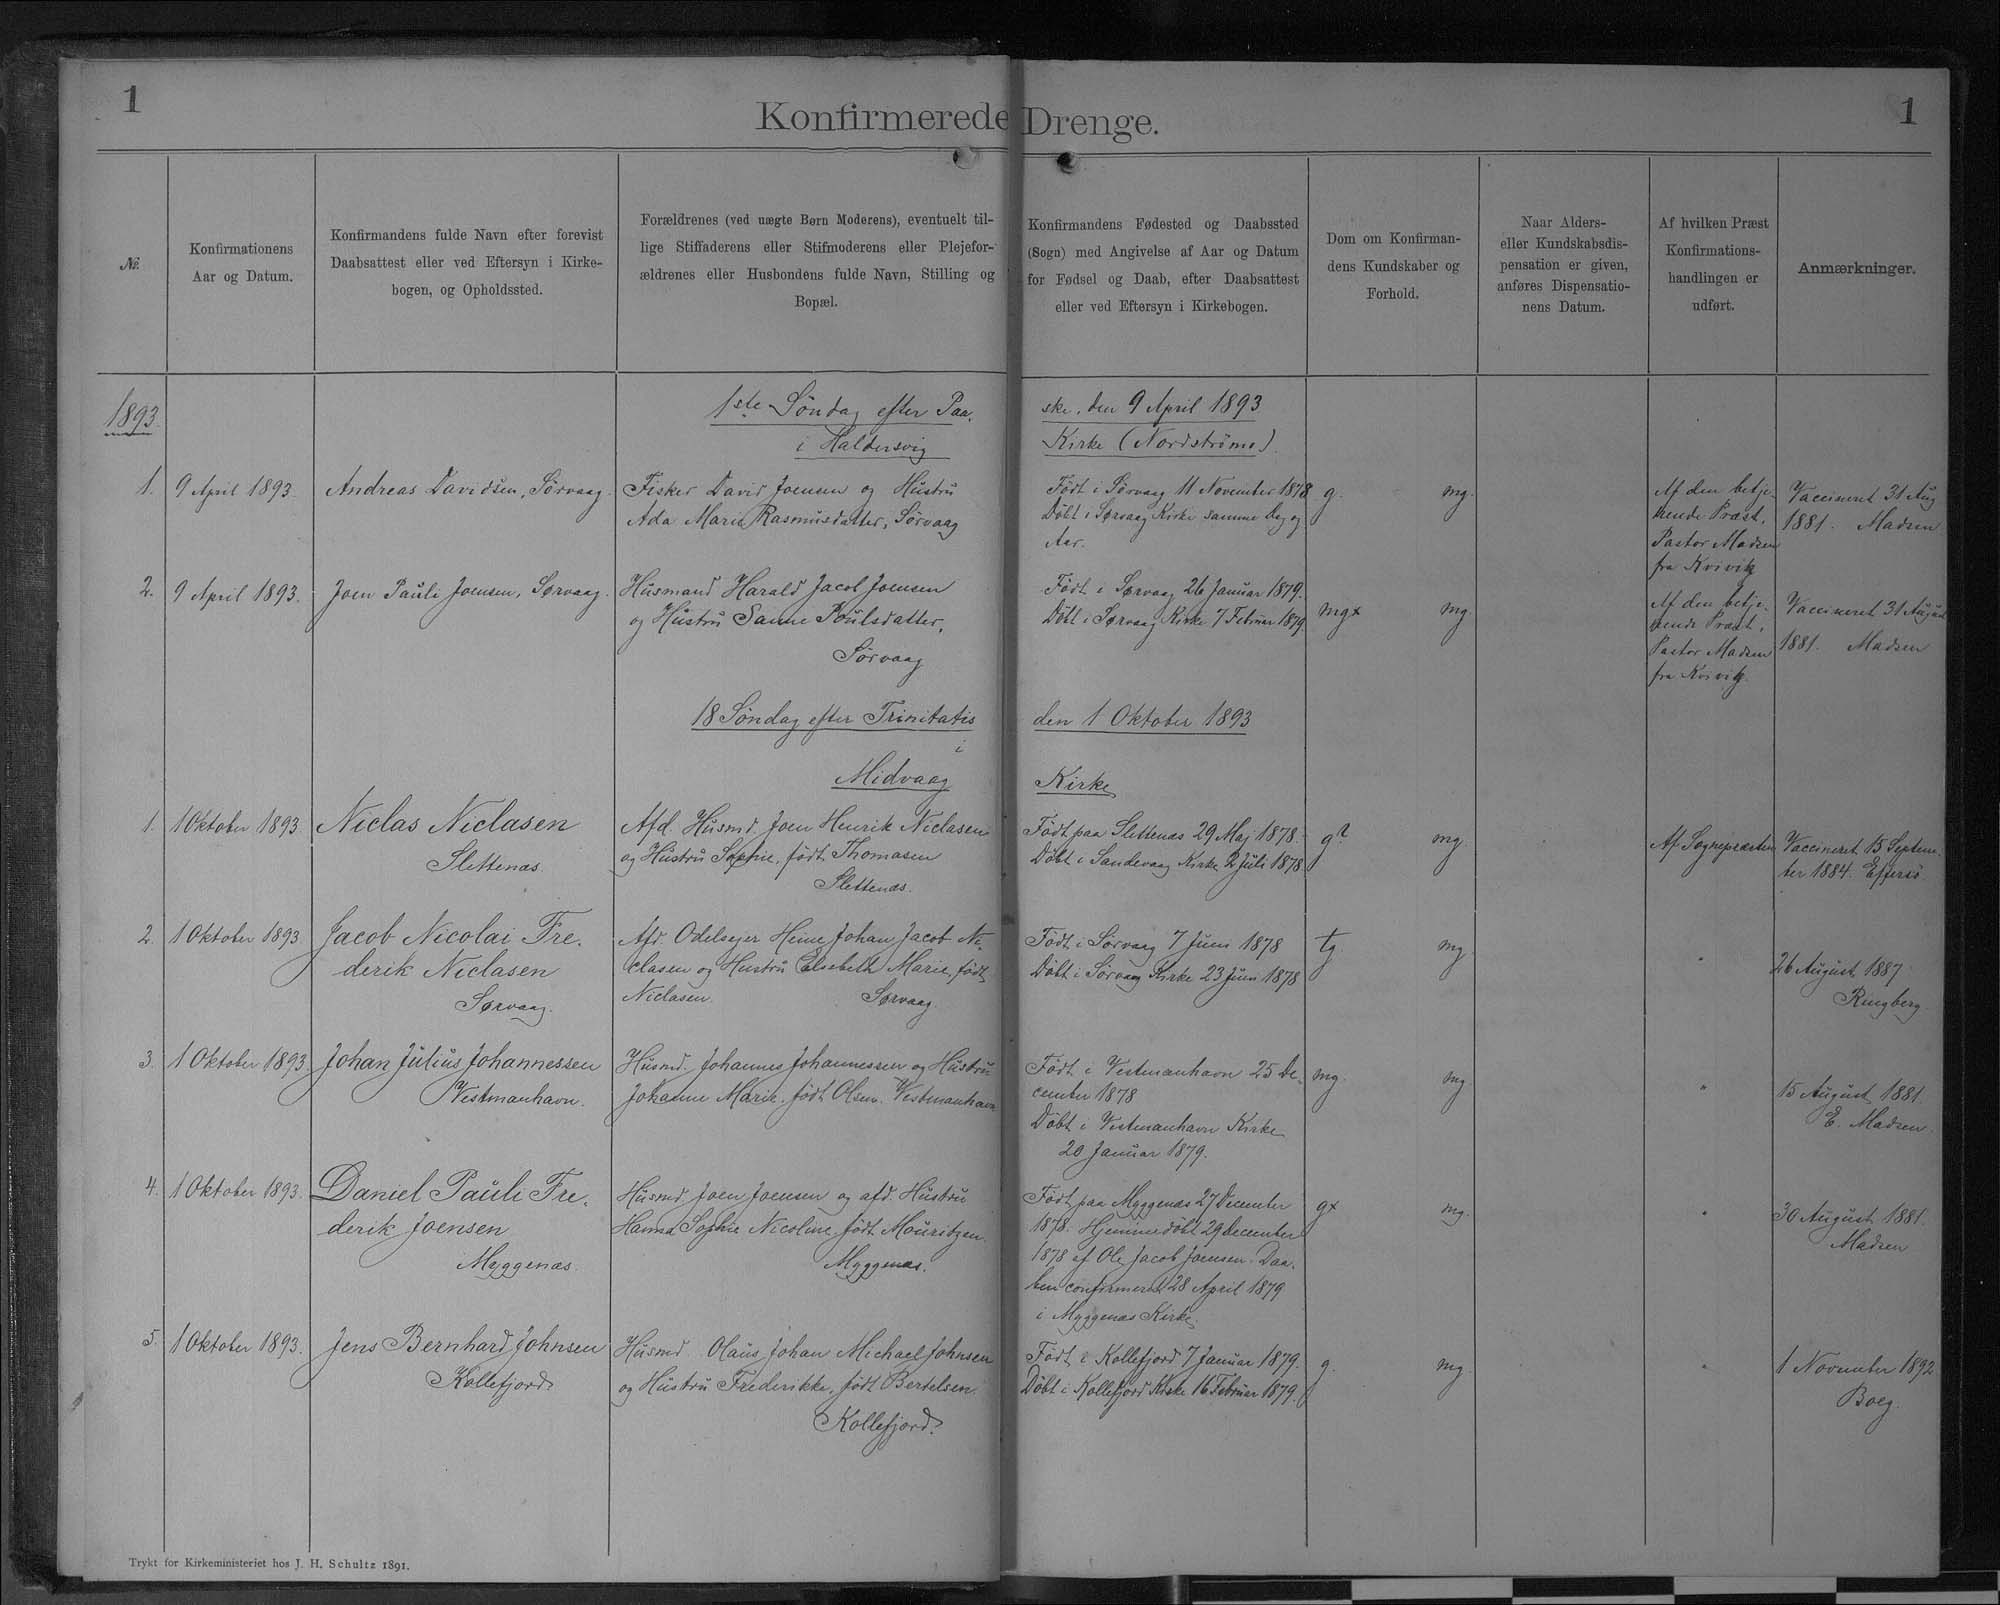 1
Konfirmerede Drenge.
1
№.
Konfirmationens
Aar og Datum.
Konfirmandens fulde Navn efter forevist
Daabsattest eller ved Eftersyn i Kirke-
bogen, og Opholdssted.
Forældrenes (ved uægte Børn Moderens), eventuelt til-
lige Stiffaderens eller Stifmoderens eller Plejefor-
ældrenes eller Husbondens fulde Navn, Stilling og
Bopæl.
Konfirmandens Fødested og Daabssted
(Sogn) med Angivelse af Aar og Datum
for Fødsel og Daab, efter Daabsattest
eller ved Eftersyn i Kirkebogen.
Dom om Konfirman-
dens Kundskaber og
Forhold.
Naar Alders-
eller Kundskabsdis-
pensation er given,
anføres Dispensatio-
nens Datum.
Af hvilken Præst
Konfirmations-
handlingen er
udført.
Anmærkninger.
1893.
1ste Söndag efter Paa-
ske, den 9 April 1893
i Haldersvig
Kirke (Nordströmø)
1.
9 April 1893.
Andreas Davidsen, Sörvaag.
Fisker David Joensen og Hustru
Ada Maria Rasmusdatter, Sörvaag
Födt i Sörvaag 11 November 1878
Döbt i Sørvaag Kirke samme Dag og
Aar.
g.
mg.
Af den betje-
nende Præst,
Pastor Madsen
fra Kvivig
Vaccineret 31 Aug
1881. Madsen
2.
9 April 1893.
Joen Pauli Joensen, Sørvaag.
Husmand Harald Jacob Joensen
og Hustru Sanne Poulsdatter,
Sörvaag
Födt i Sørvaag 26 Januar 1879.
Döbt i Sørvaag Kirke 7 Februar 1879.
mgx
mg.
Af den betje-
nende Præst,
Pastor Madsen
fra Kvivig.
Vaccineret 31 August
1881. Madsen
18 Söndag efter Trinitatis
den 1 Oktober 1893
i
Midvaag
Kirke
1.
1 Oktober 1893.
Niclas Niclasen
Slettenæs.
Afd. Husmd. Joen Henrik Niclasen
og Hustru Sophie, födt Thomasen
Slettenæs.
Födt paa Slettenæs 29 Maj 1878.
Döbt i Sandevaag Kirke 2 Juli 1878
g?
mg.
Af Sognepræsten
Vaccineret 15 Septem-
ber 1884.
2.
1 Oktober 1893
Jacob Nicolai Fre-
derik Niclasen
Sørvaag.
Afd. Odelsejer Heine Johan Jacob Ni-
clasen og Hustru Elsebeth Marie, födt
Niclasen. Sørvaag.
Födt i Sörvaag 7 Juni 1878
Döbt i Sörvaag Kirke 23 Juni 1878
tg.
mg.
"
26 August 1887.
Ringberg
3.
1 Oktober 1893.
Johan Julius Johannessen
Vestmanhavn.
Husmd. Johannes Johannessen og Hustru
Johanne Marie, födt Olsen. Vestmanhavn
Födt i Vestmanhavn 25 De-
cember 1878
Döbt i Vestmanhavn Kirke
20 Januar 1879.
mg.
mg.
"
15 August 1881.
E. Madsen.
4.
1 Oktober 1893.
Daniel Pauli Fre-
derik Joensen
Myggenæs.
Husmd. Joen Joensen og afd. Hustru
Hanna Sophie Nicoline, födt Mouritzen.
Myggenæs.
Födt paa Myggenæs 27 December
1878. Hjemmedöbt 29 December
1878 af Ole Jacob Joensen. Daa-
ben confirmeret 28 April 1879
i Myggenæs Kirke.
gx
mg.
"
30 August 1881.
Madsen
5.
1 Oktober 1893.
Jens Bernhard Johnsen
Kollefjord.
Husmd. Olaus Johan Michael Johnsen
og Hustru Frederikke, födt Bertelsen.
Kollefjord.
Födt i Kollefjord 7 Januar 1879.
Döbt i Kollefjord Kirke 16 Februar 1879.
g.
mg
"
1 November 1892
Boeg.
Trykt for Kirkeministeriet hos J. H. Schultz 1891.